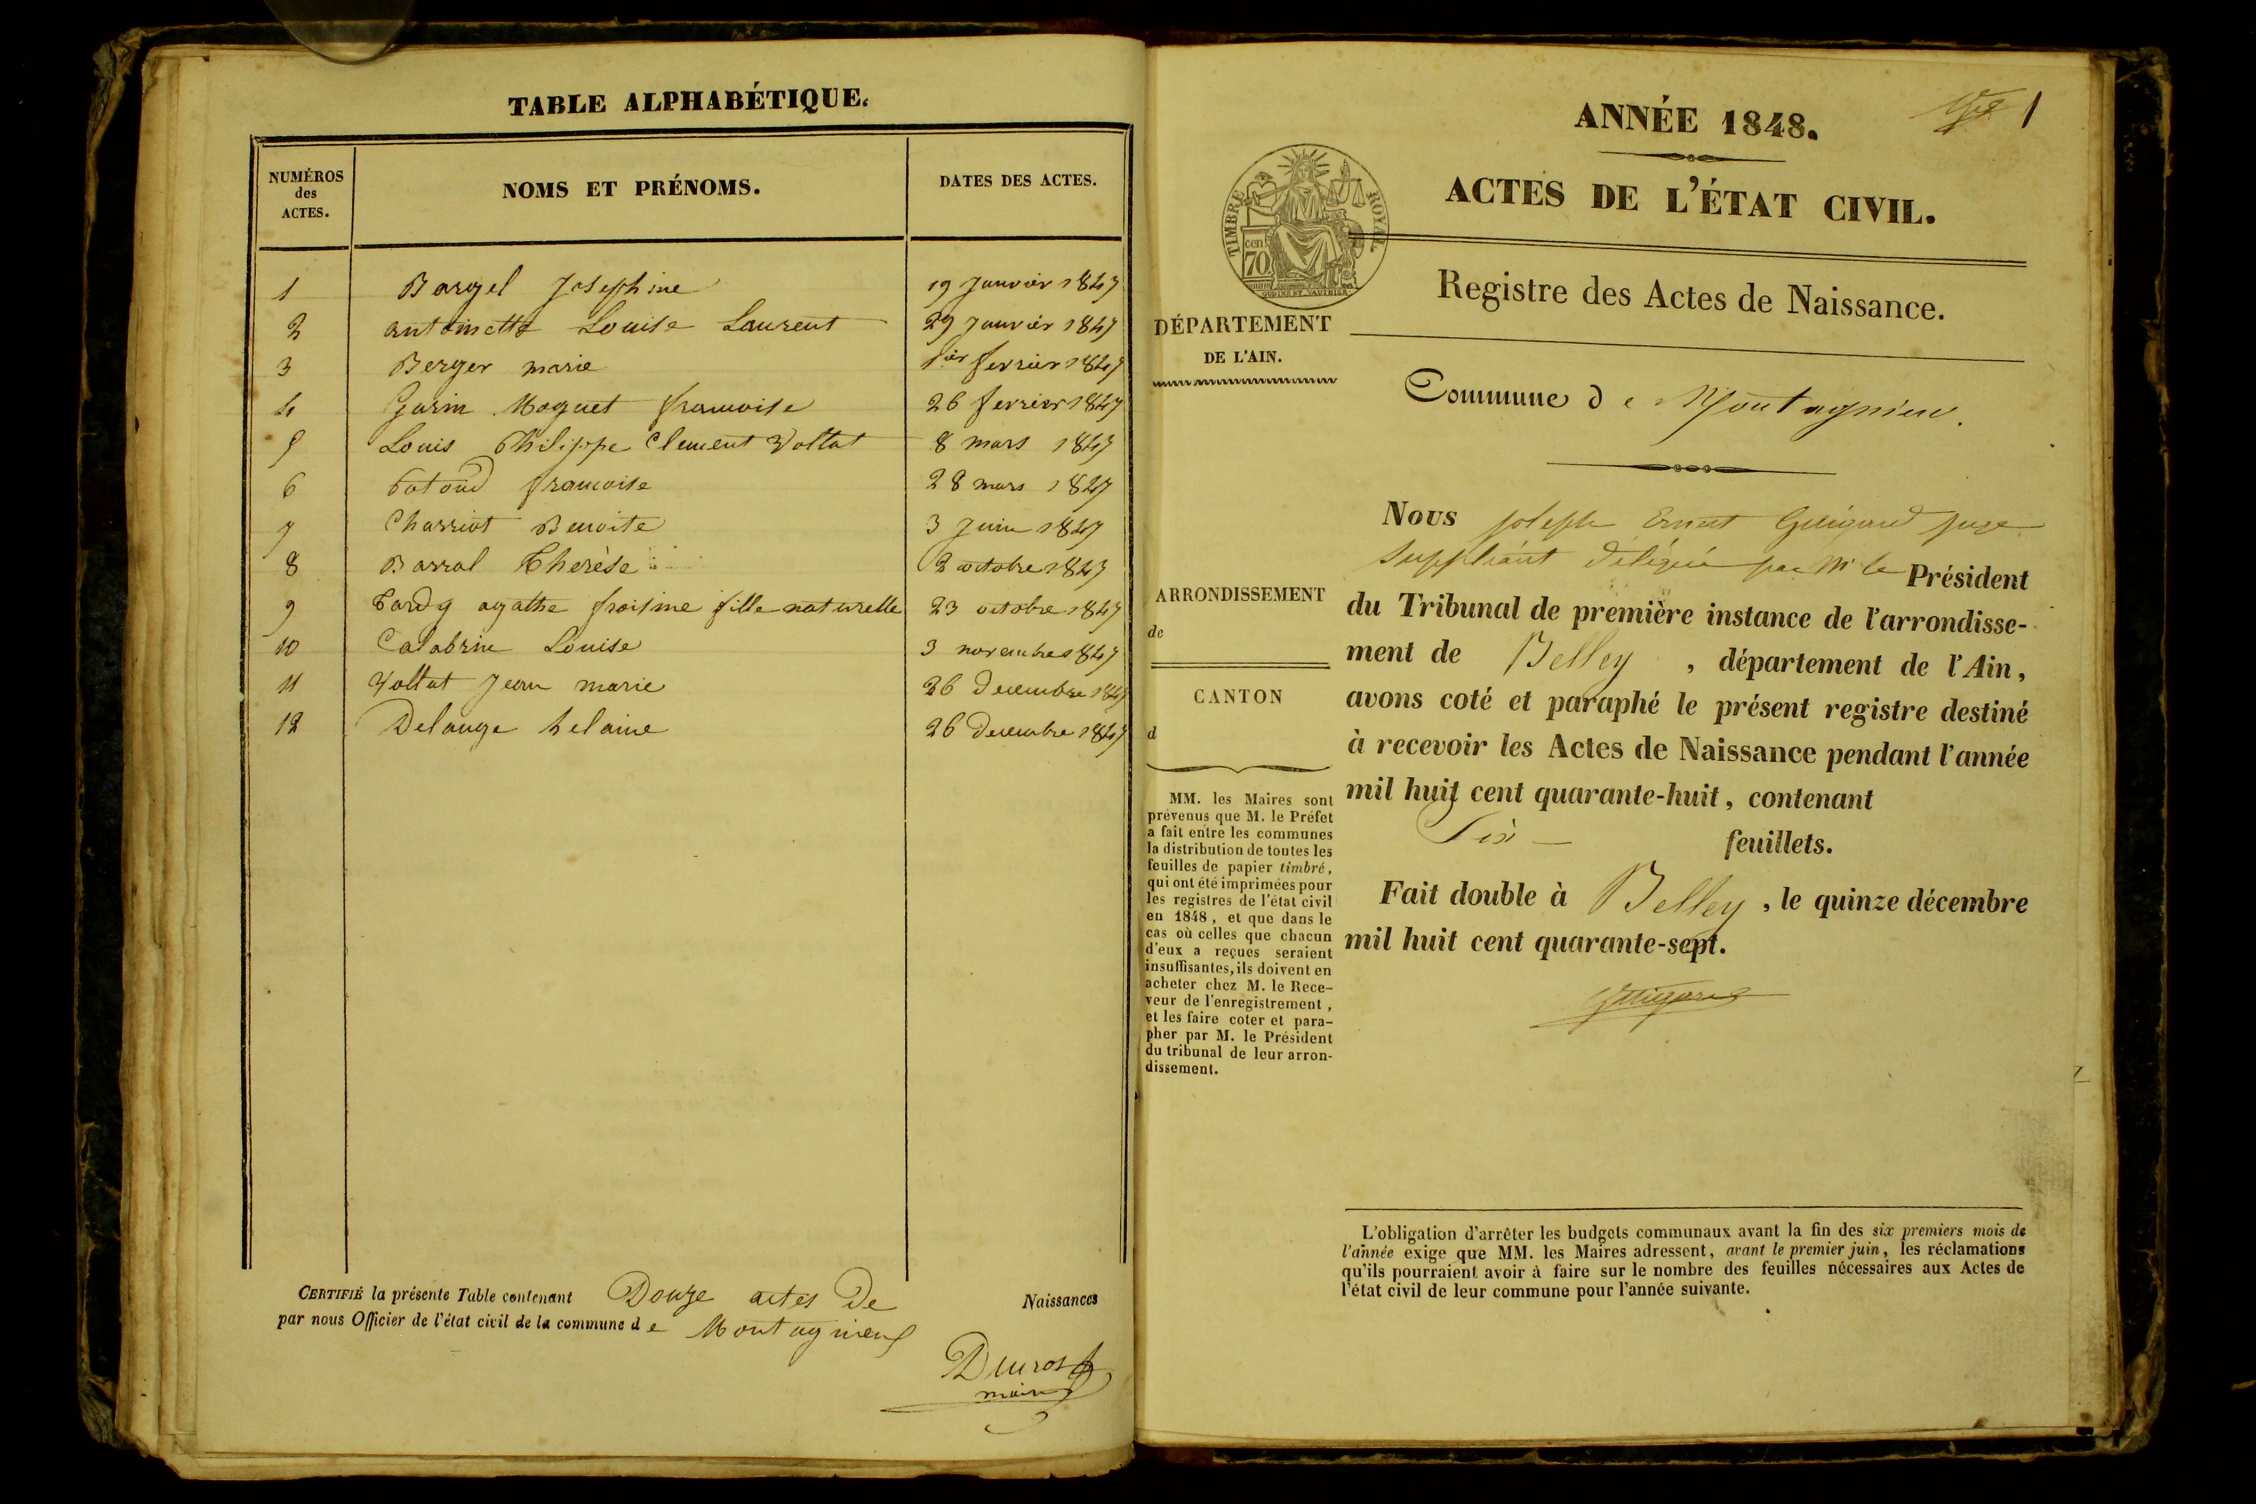 TABLE ALPHABÉTIQUE.
NUMÉROS
des
ACTES.
NOMS ET PRÉNOMS.
DATES DES ACTES.
1 Bargel Josephine 19 Janvier 1847
2 antoinette Louise Laurent 29 Janvier 1847
3 Berger marie 1ier fevrier 1847
4 Garin Moguet francoise 26 fevrier 1847
5 Louis Philippe Clement Vollat 8 mars 1847
6 francoise 28 mars 1847
7 Charriot Benoite 3 Juin 1847
8 Barral Therèse 2 octobre 1847
9 Tardy agathe froisine fille naturelle 23 octobre 1847
10 Calabrine Louise 3 novembre 1847
11 Vollat Jean marie 26 Decembre 1847
12 Delange helaine 26 Decembre 1847
CERTIFIÉ la présente Table contenant Douze actes De Naissances
par nous Officier de l'état civil de la commune de Montagnieu
maire
1
ANNÉE 1848.
ACTES DE L'ÉTAT CIVIL.
TIMBRE ROYAL
cen.
70
Registre des Actes de Naissance.
DÉPARTEMENT
DE L'AIN.
Commune de Montagnieu.
Nous joseph Ernest juge
suppléant délégué par Mr le Président
du Tribunal de première instance de l'arrondisse-
ment de Belley, département de l'Ain,
avons coté et paraphé le présent registre destiné
à recevoir les Actes de Naissance pendant l'année
mil huit cent quarante-huit, contenant
Six — feuillets.
Fait double à Belley, le quinze décembre
mil huit cent quarante-sept.
ARRONDISSEMENT
de
CANTON
d
MM. les Maires sont
prévenus que M. le Préfet
a fait entre les communes
la distribution de toutes les
feuilles de papier timbré,
qui ont été imprimées pour
les registres de l'état civil
en 1848, et que dans le
cas où celles que chacun
d'eux a reçues seraient
insuffisantes, ils doivent en
acheter chez M. le Rece-
veur de l'enregistrement,
et les faire coter et para-
pher par M. le Président
du tribunal de leur arron-
dissement.
L'obligation d'arrêter les budgets communaux avant la fin des six premiers mois de
l'année exige que MM. les Maires adressent, avant le premier juin, les réclamations
qu'ils pourraient avoir à faire sur le nombre des feuilles nécessaires aux Actes de
l'état civil de leur commune pour l'année suivante.